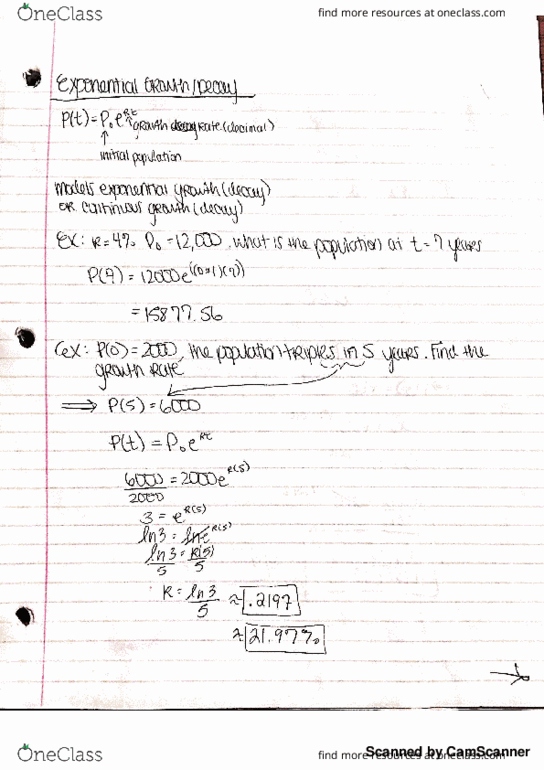 OneClass
find more resources at oneclass.com
Exponential Growth/Decay
P(t) = P₀e^Rt
growth rate (decimal)
initial population
models exponential growth (decay)
OR continuous growth (decay)
Ex: R = 4% P₀ = 12,000. What is the population at t = 7 years
P(7) = 12000e
= 15877.56
(ex: P(0) = 2000, the population triples in 5 years. Find the
growth rate
⟹ P(5) = 6000
P(t) = P₀e^Rt
6000 = 2000e^R(5)
2000
3 = e^R(5)
ln 3 = ln e^R(5)
ln 3 = R(5)
5 5
R = ln 3 ≈ .2197
5
≈ 21.97%
OneClass
find more resources at oneclass.com
Scanned by CamScanner